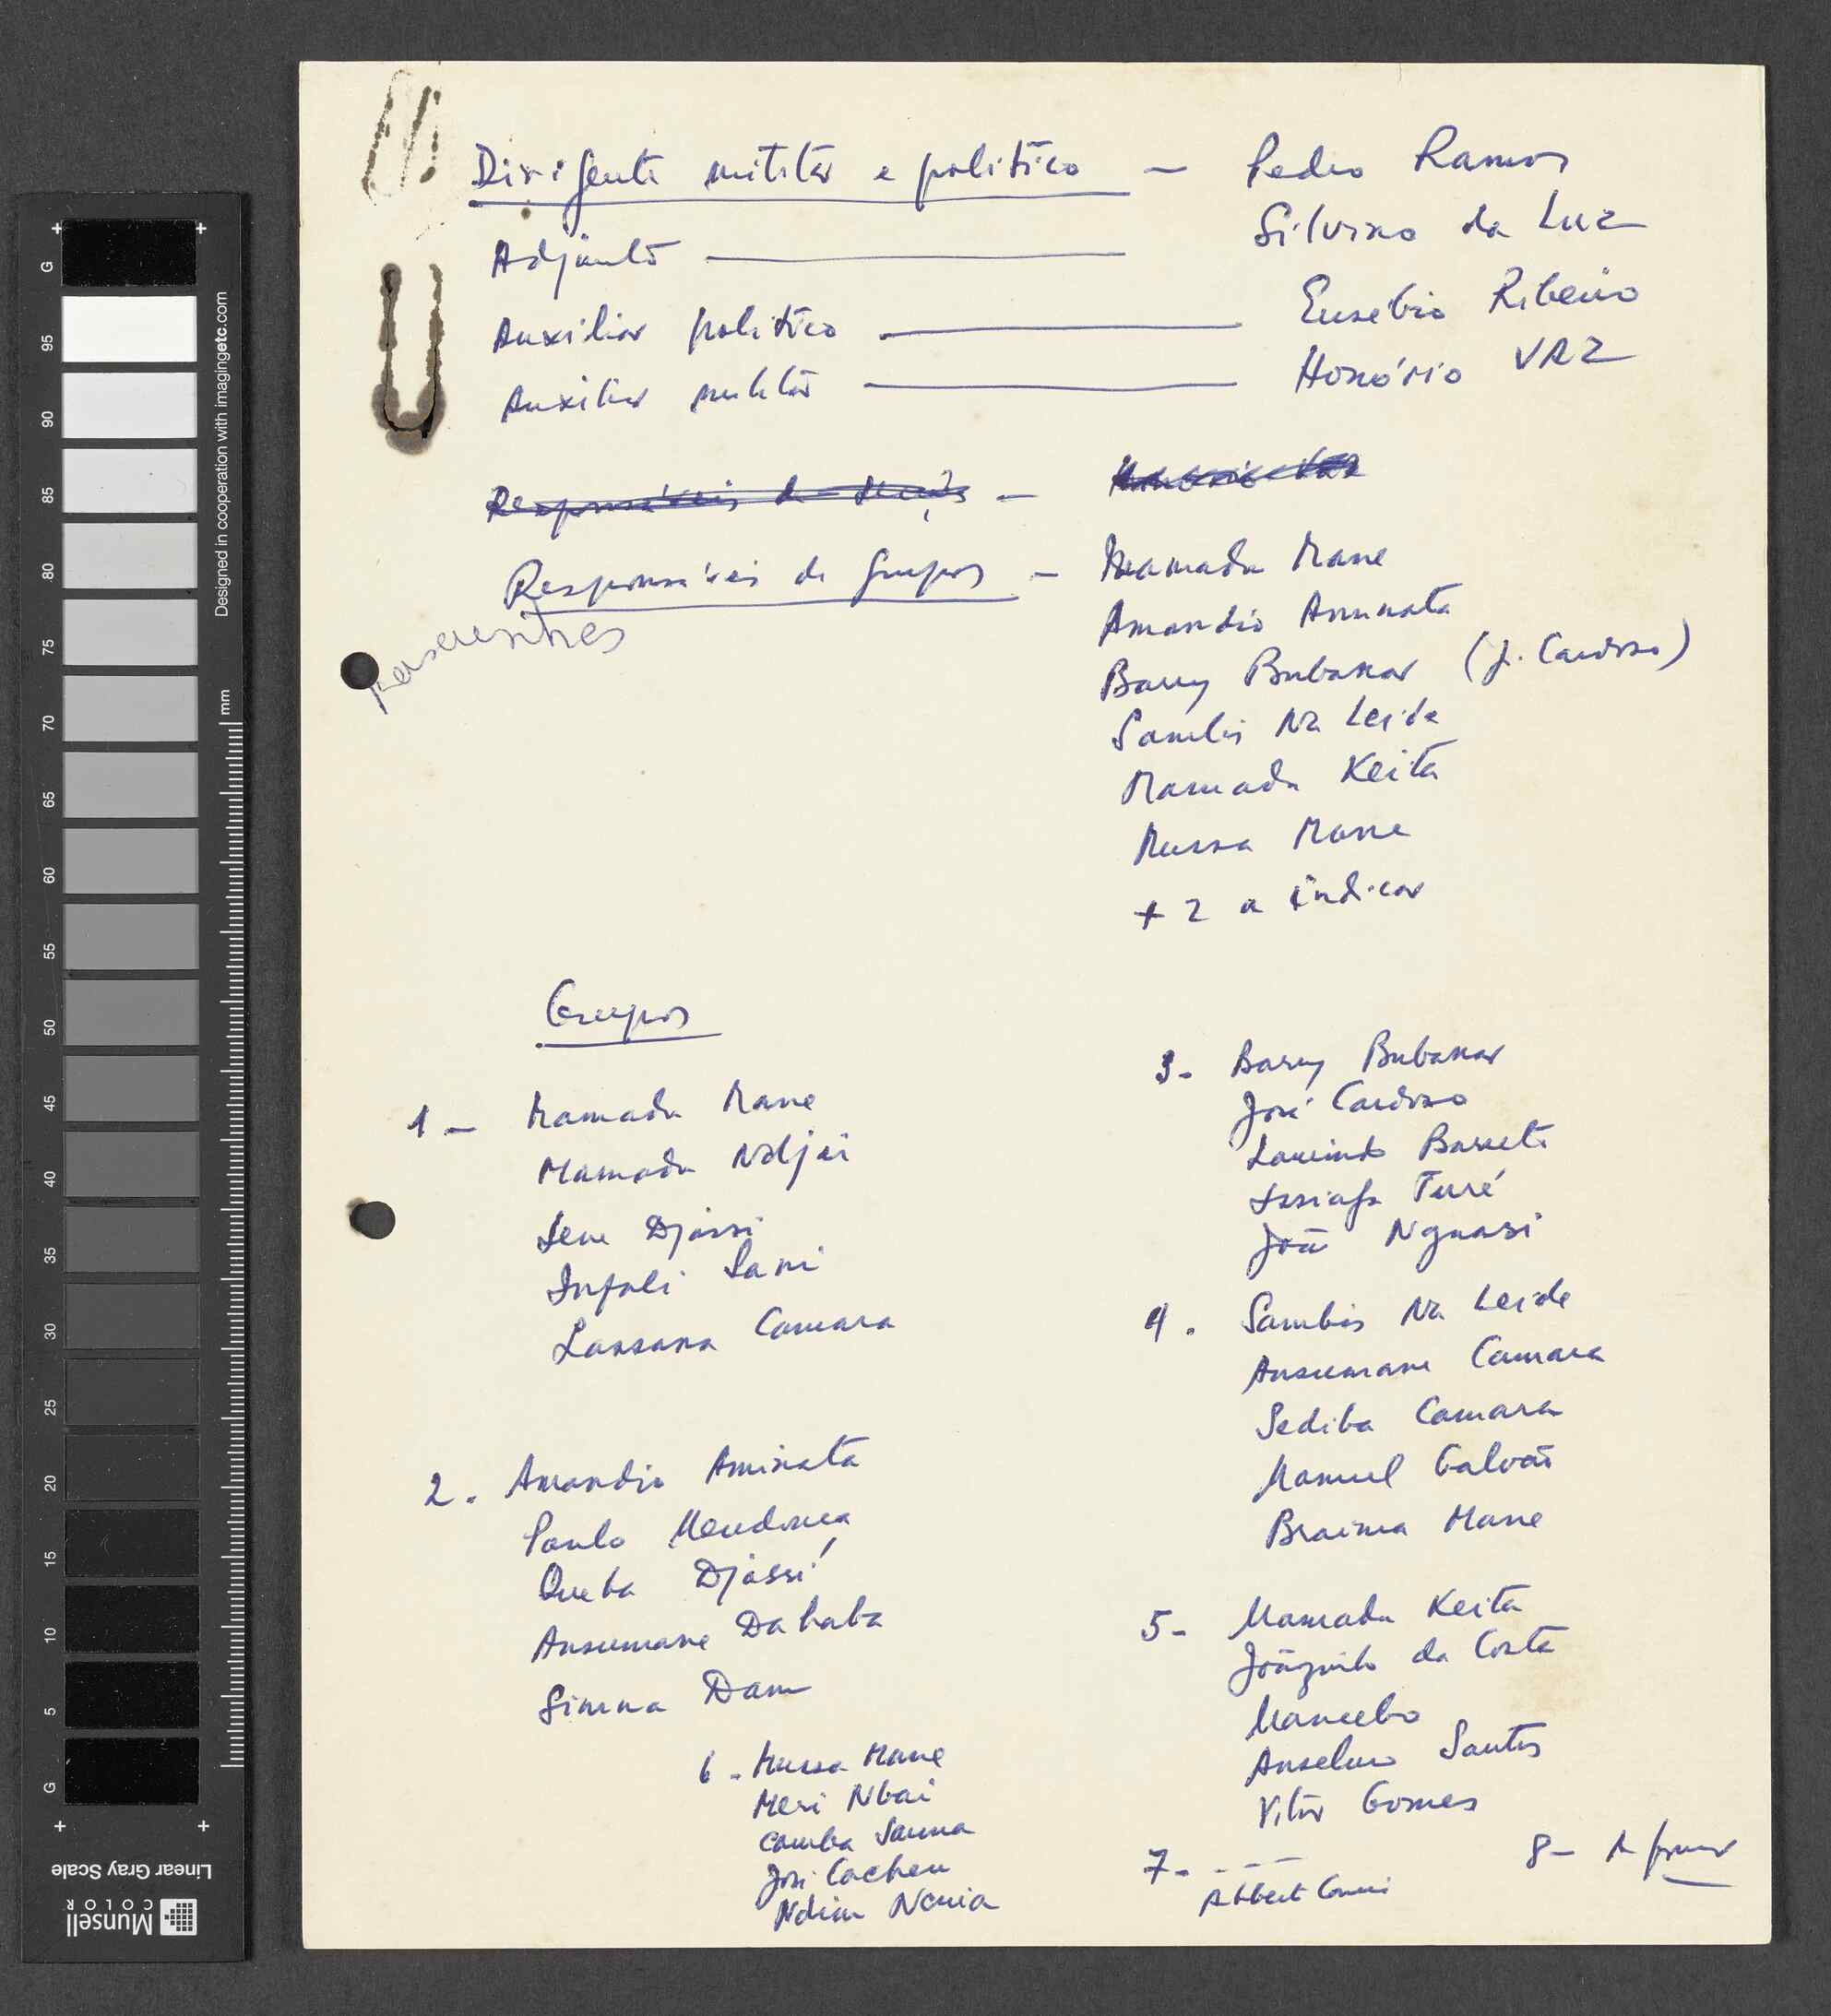 Dirigente militar e politico — Pedro Ramos
Adjunto — Silvino da Luz
Auxiliar politico — Eusébio Ribeiro
Auxiliar militar — Honório VAZ
Responsáveis de —
Responsáveis de Grupos — Mamadu Mane
Amandio Aminata
Barry Bubakar (J. Cardoso)
Sambis Na Leide
Mamadu Keita
Mussa Mane
+ 2 a indicar
Grupos
1 — Mamadu Mane
Mamadu Ndjai
Sene Djassi
Infali Sani
Lassana Camara
2. Amandio Aminata
Paulo Mendonca
Queba Djassi
Ansumane Dahaba
Simma Dam
3- Barry Bubakar
José Cardoso
Laurindo Barreto
Issiafa Turé
João Nguasi
4. Sambis Na Leide
Ansumane Camara
Sediba Camara
Manuel Galvão
Braima Mane
5- Mamadu Keita
Joãozinho da Costa
Mancebo
Anselmo Santos
Vitor Gomes
6. Mussa Mane
Meri Nbai
Camba Sanna
José Cacheu
Ndim Ncuia
7- - - -
8- A formar
Designed in cooperation with imagingetc.com
mm
G 95 90 85 80 75 70 65 60 55 50 45 40 35 30 25 20 15 10 5 G
Linear Gray Scale
Munsell
COLOR